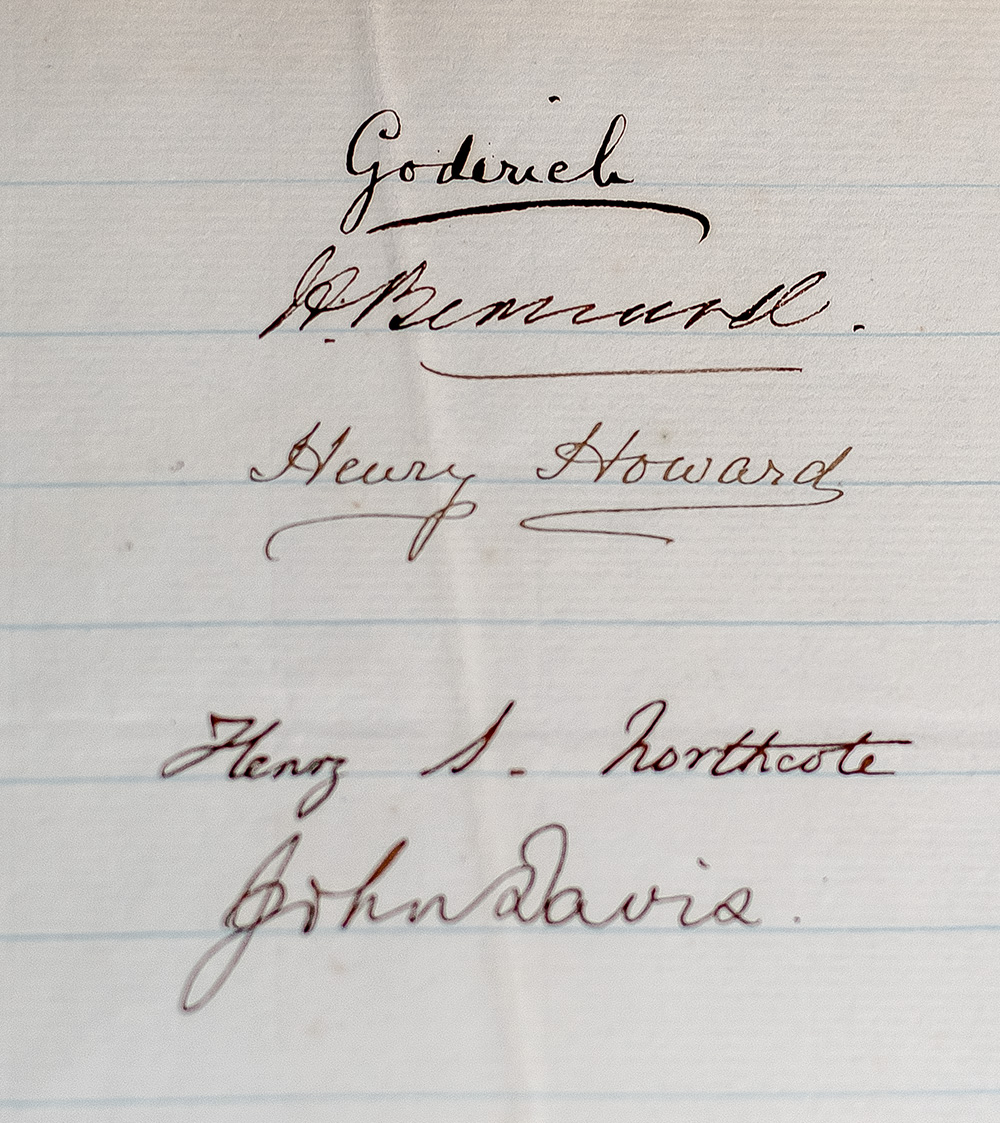 Goderich
H. Bernard.
Henry Howard
Henry S. Northcote
John Davis.